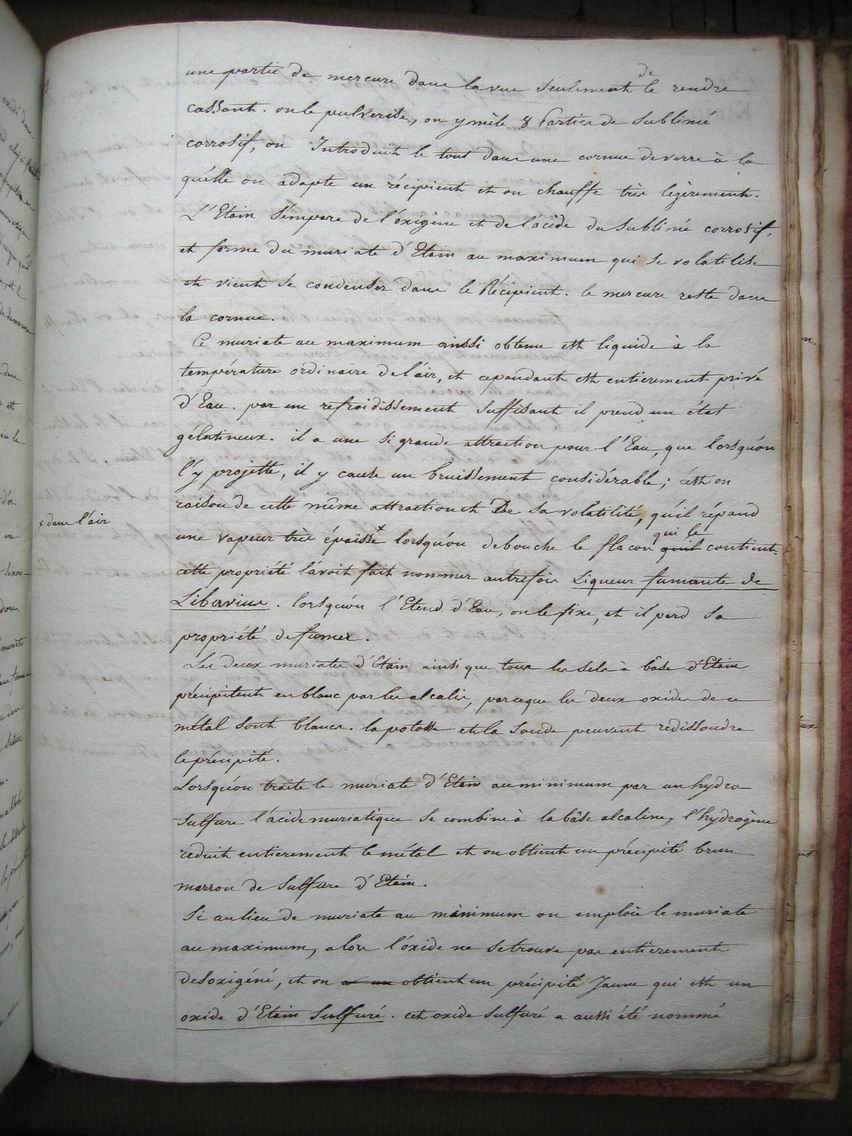 une partie de mercure dans la vue seulement de le rendre
cassant. on le pulverise, on y mêle 8 Parties de sublimé
corrosif, on Introduit le tout dans une cornue de verre à la
quélle on adapte un récipient et on chauffe très legèrement.
L'Etain s'émpare de l'oxigène et de l'acide du sublimé corrosif,
et forme du muriate d'Etain au maximum qui se volatilise
et vient se condenser dans le Récipient. le mercure reste dans
la cornue.
Ce muriate au maximum ainssi obtenu est liquide à la
température ordinaire de l'air, et cependant est entierement privé
d'Eau. par un refroidissement suffisant il prend un état
gélatineux. il a une si grande attraction pour l'Eau, que lorsqu'on
l'y projette, il y cause un bruissement considérable; c'est en
raison de cette même attraction et De sa volatilité, qu'il répand
x dans l'air
une vapeur très épaisse x lorsqu'on debouche le flacon qui le contient.
cette propriété l'avoit fait nommer autrefois Liqueur fumante de
Libavius. lorsqu'on l'Etend d'Eau, on le fixe, et il perd sa
propriété de fumer.
Les deux muriates d'Etain ainsi que tous les sels à bâse d'Etain
précipitent en blanc par les alcalis, parceque les deux oxides de ce
métal sont blancs. la potasse et la soude peuvent redissoudre
le précipité.
Lorsqu'on traite le muriate d'Etain au minimum par un hydro
sulfure l'acide muriatique se combine à la bâse alcaline, l'hydrogène
reduit entierement le métal et on obtient un précipité brun
marron de sulfure d'Etain.
Si au lieu de muriate au minimum on emploie le muriate
au maximum, alors l'oxide ne se trouve pas entierement
desoxigéné, et on obtient un précipité Jaune qui est un
oxide d'Etain sulfuré. cet oxide sulfuré a aussi été nommé